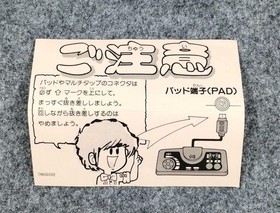 ご注意
ちゅうい
パッド端子(PAD)
パッドやマルチタップのコネクタは
必ず⇧マークを上にして、
まっすぐ抜き差ししましょう。
しながら抜き差しするのは
やめましょう。